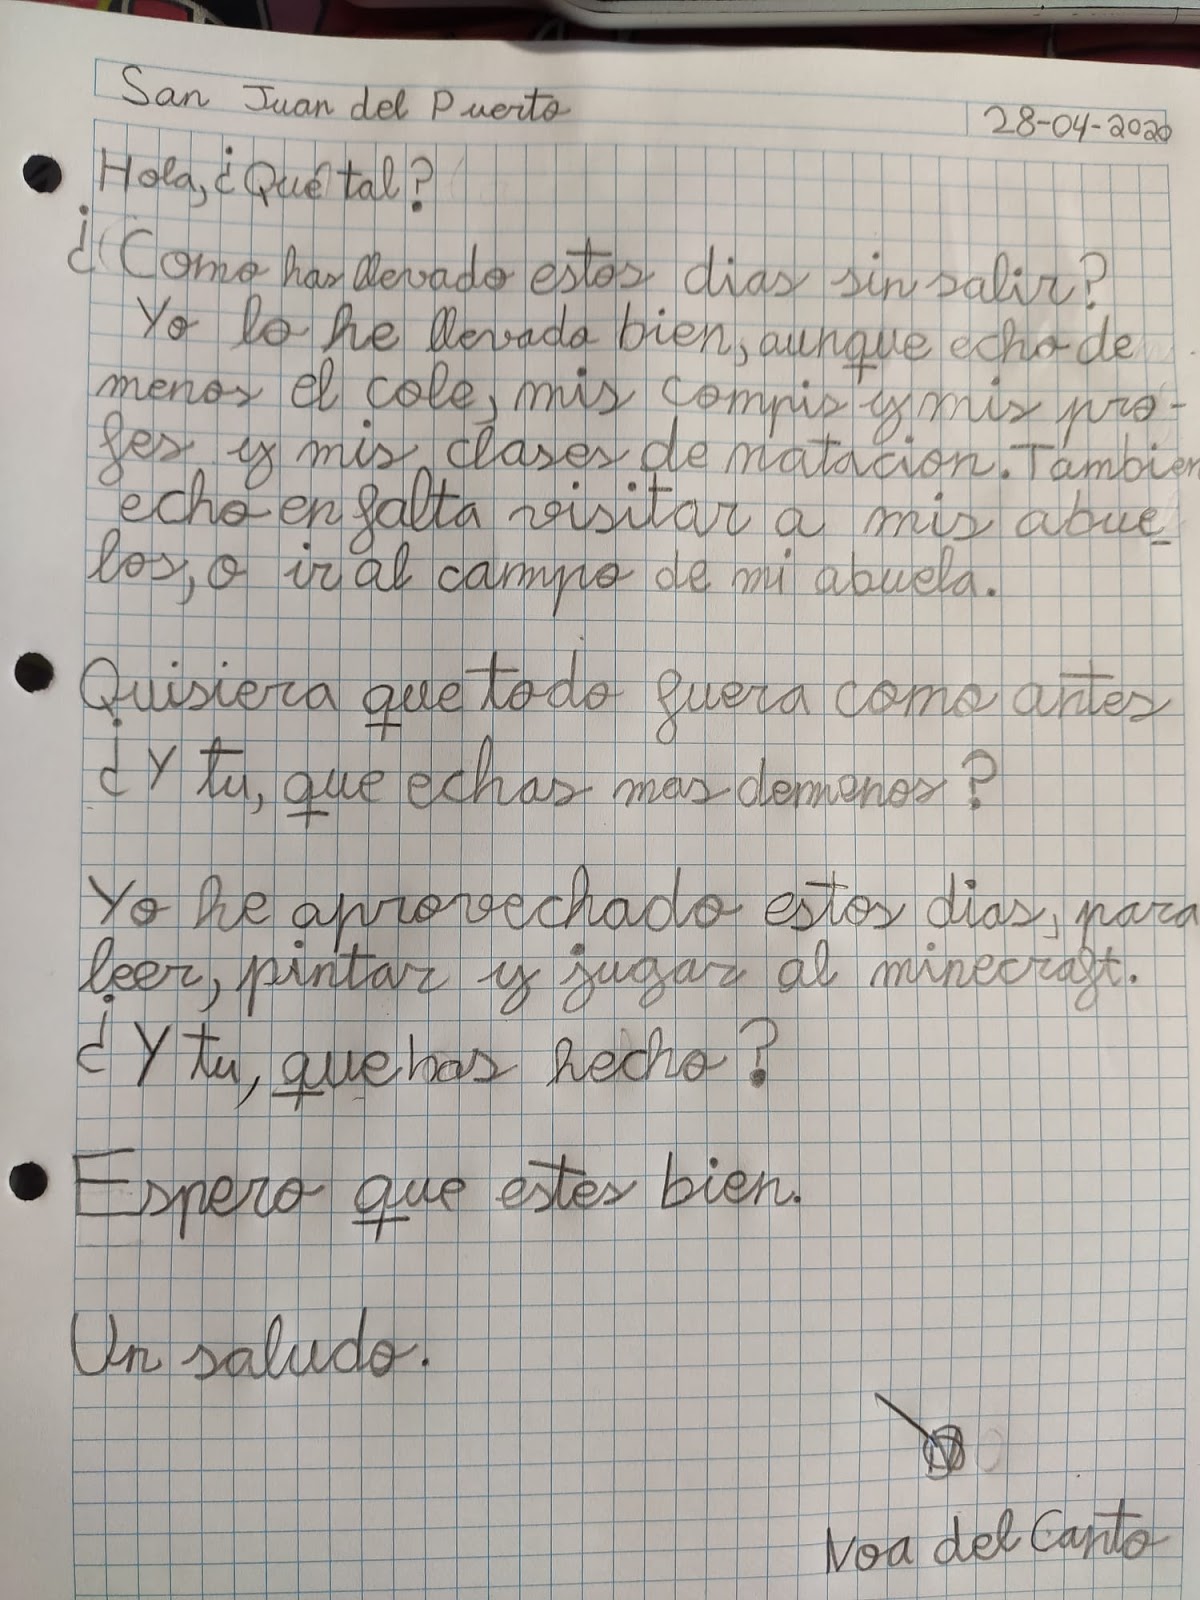 San Juan del Puerto
28-04-2020
Hola, ¿Qué tal?
¿Como has llevado estos dias sin salir?
Yo lo he llevado bien, aunque echo de
menos el cole, mis compis y mis pro-
fes y mis clases de natacion. Tambien
echo en falta visitar a mis abue-
los, o ir al campo de mi abuela.
Quisiera que todo fuera como antes
¿Y tu, que echas mas de menos?
Yo he aprovechado estos dias, para
leer, pintar y jugar al minecraft.
¿Y tu, que has hecho?
Espero que estes bien.
Un saludo.
Noa del Canto